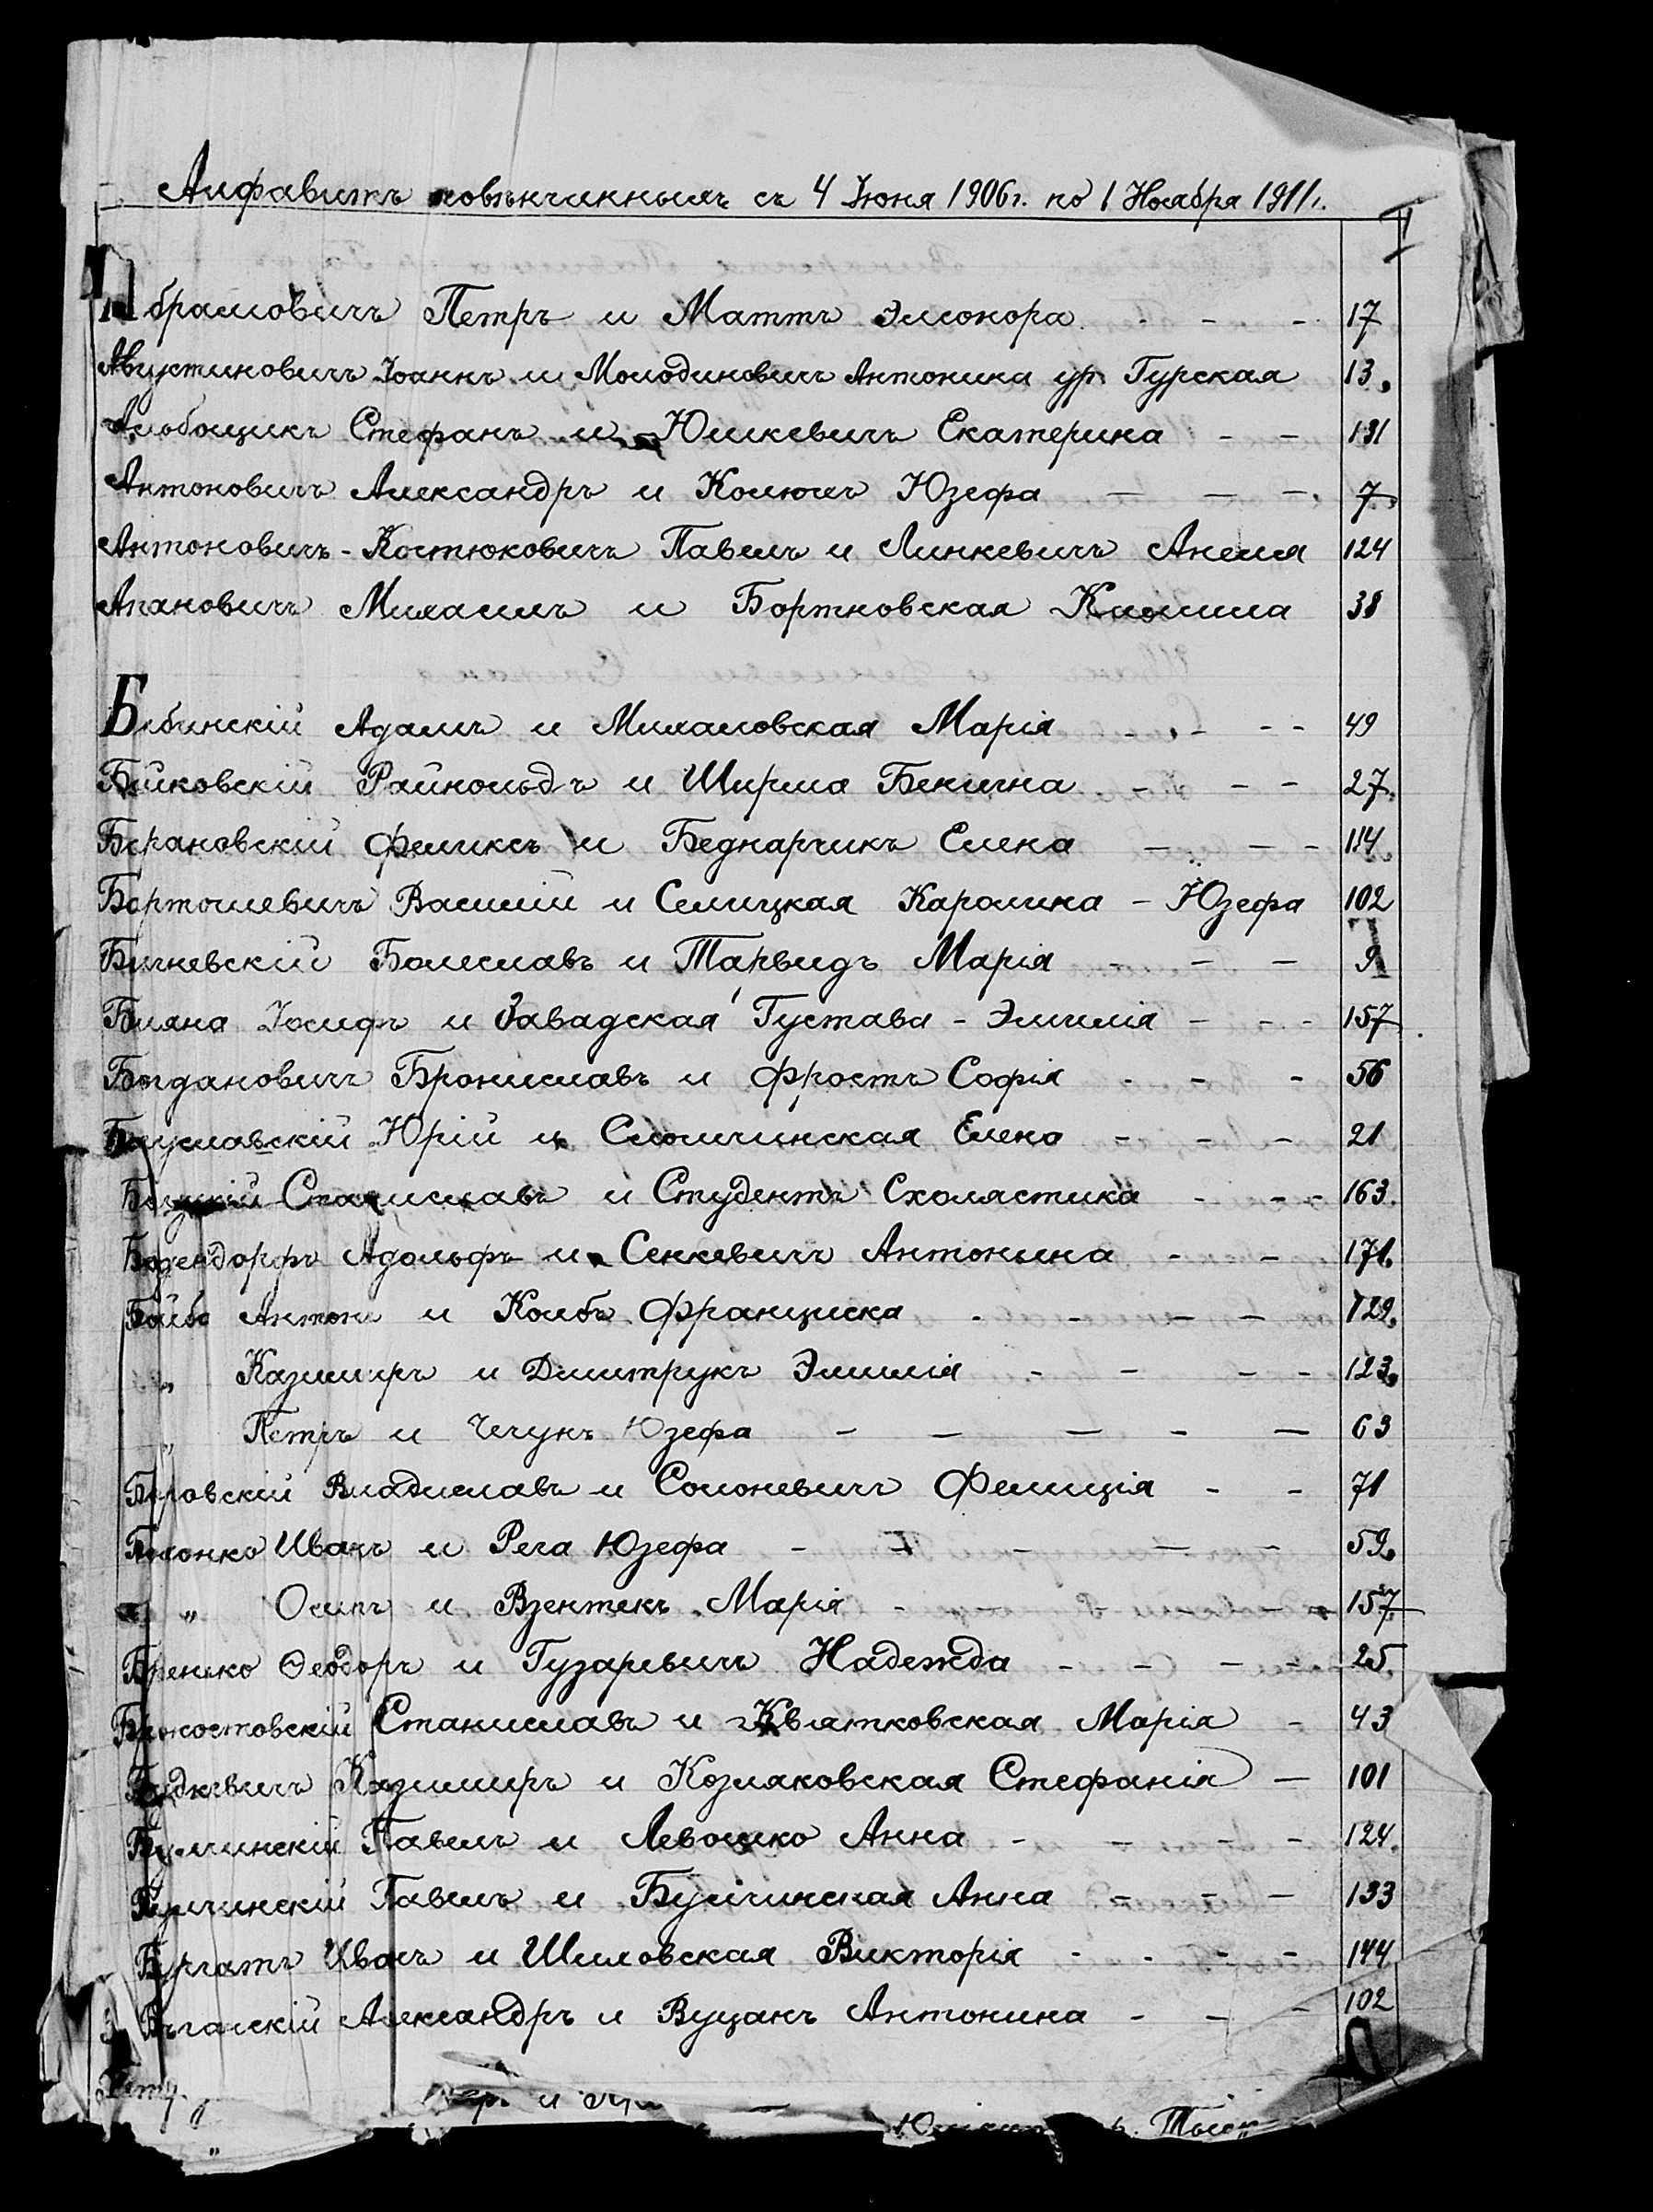 Алфавитъ повѣнчаннымъ съ 4 Іюня 1906г. по 1 Ноября 1911г.
Абрамовичъ Петръ и Маттъ Элеонора - - - 17
Августиновичъ Іоаннъ и Молодиновичъ Антонина ур. Гурская 13.
Стефанъ и Юшкевичъ Екатерина - - 131
Антоновичъ Александръ и Юзефа - - - 7
Антоновичъ-Костюковичъ Павелъ и Линкевичъ Анеля 124
Апановичъ Михаилъ и Бортновская Камила 38
Бабинскій Адамъ и Михаловская Марія - - - - 49
Байковскій Райнольдъ и Ширма Бенигна - - - 27.
Барановскій Феликсъ и Беднарчикъ Елена - - - 114
Бартошевичъ Василій и Селицкая Каролина - Юзефа 102
Бичневскій Болеславъ и Тарвидъ Марія - - - 9
Бляна Іосифъ и Завадская Густава - Эмилія - - - 157
Богдановичъ Брониславъ и Фростъ Софія - - - 56
Богуславскій Юрій и Елена - - - 21
Станиславъ и Студентъ Схолястика - - - 163.
Адольфъ и Сенкевичъ Антонина - - 171.
Бойба Антонъ и Колбъ Франциска - - - - 129.
„ Казимиръ и Дмитрукъ Эмилія - - - - 123.
„ Петръ и Чечунъ Юзефа - - - - - 63
Боровскій Владиславъ и Солоневичъ Фелиція - - 71
Иванъ и Рега Юзефа - - - - - 59.
„ Осипъ и Взентекъ Марія - - - 157
Ѳеодоръ и Гузаревичъ Надежда - - - - 25.
Бржостовскій Станиславъ и Квятковская Марія - 43
Будкевичъ Казимиръ и Козляковская Стефанія - 101
Павелъ и Левошко Анна - - - - 124.
Бульчинскій Павелъ и Бульчинская Анна - - - 133
Бургатъ Иванъ и Шиловская Викторія - - - - 144
Александръ и Вуцанъ Антонина - - - 102